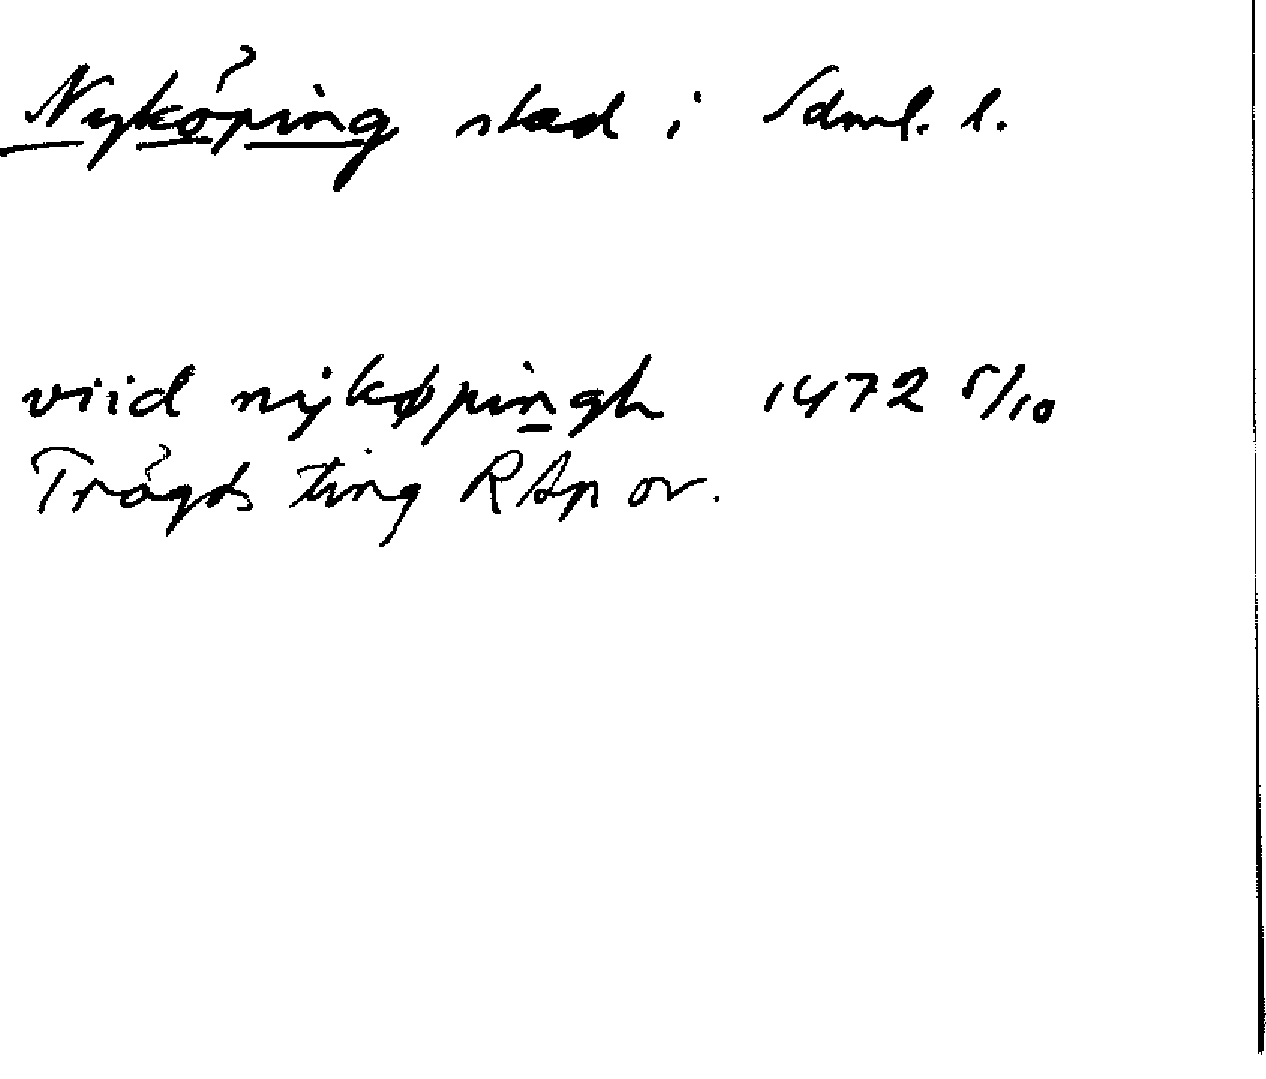 Nyköping stad i Sdml. l.
viid nyköpingh 1472 5/10
Trögds ting RAp or.